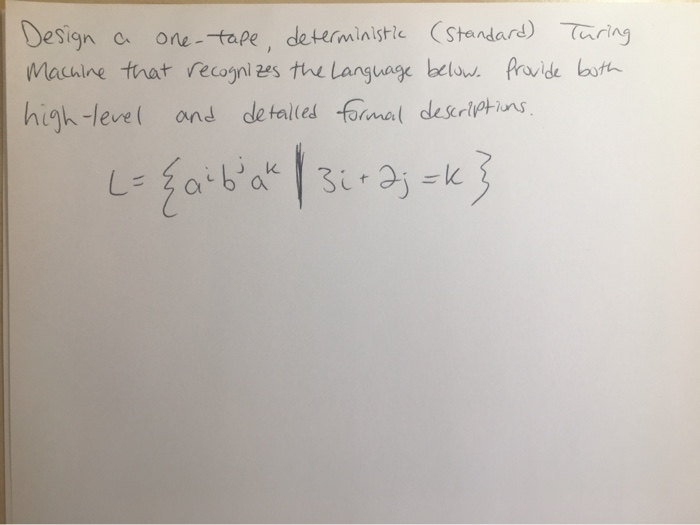 Design a one-tape, deterministic (Standard) Turing
Machine that recognizes the Language below. Provide both
high-level and detailed formal descriptions.
L = {aⁱbʲaᵏ | 3i + 2j = k}